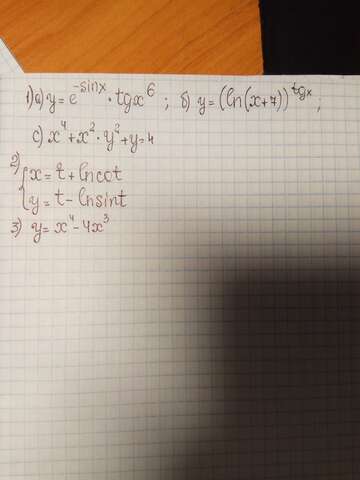 1) a) y = e^{-sinx} · tgx^6 ; б) y = (ln(x+7))^{tgx} ;
c) x^4 + x^2 · y^2 + y = 4
2) { x = t + lncot
y = t - lnsint
3) y = x^4 - 4x^3